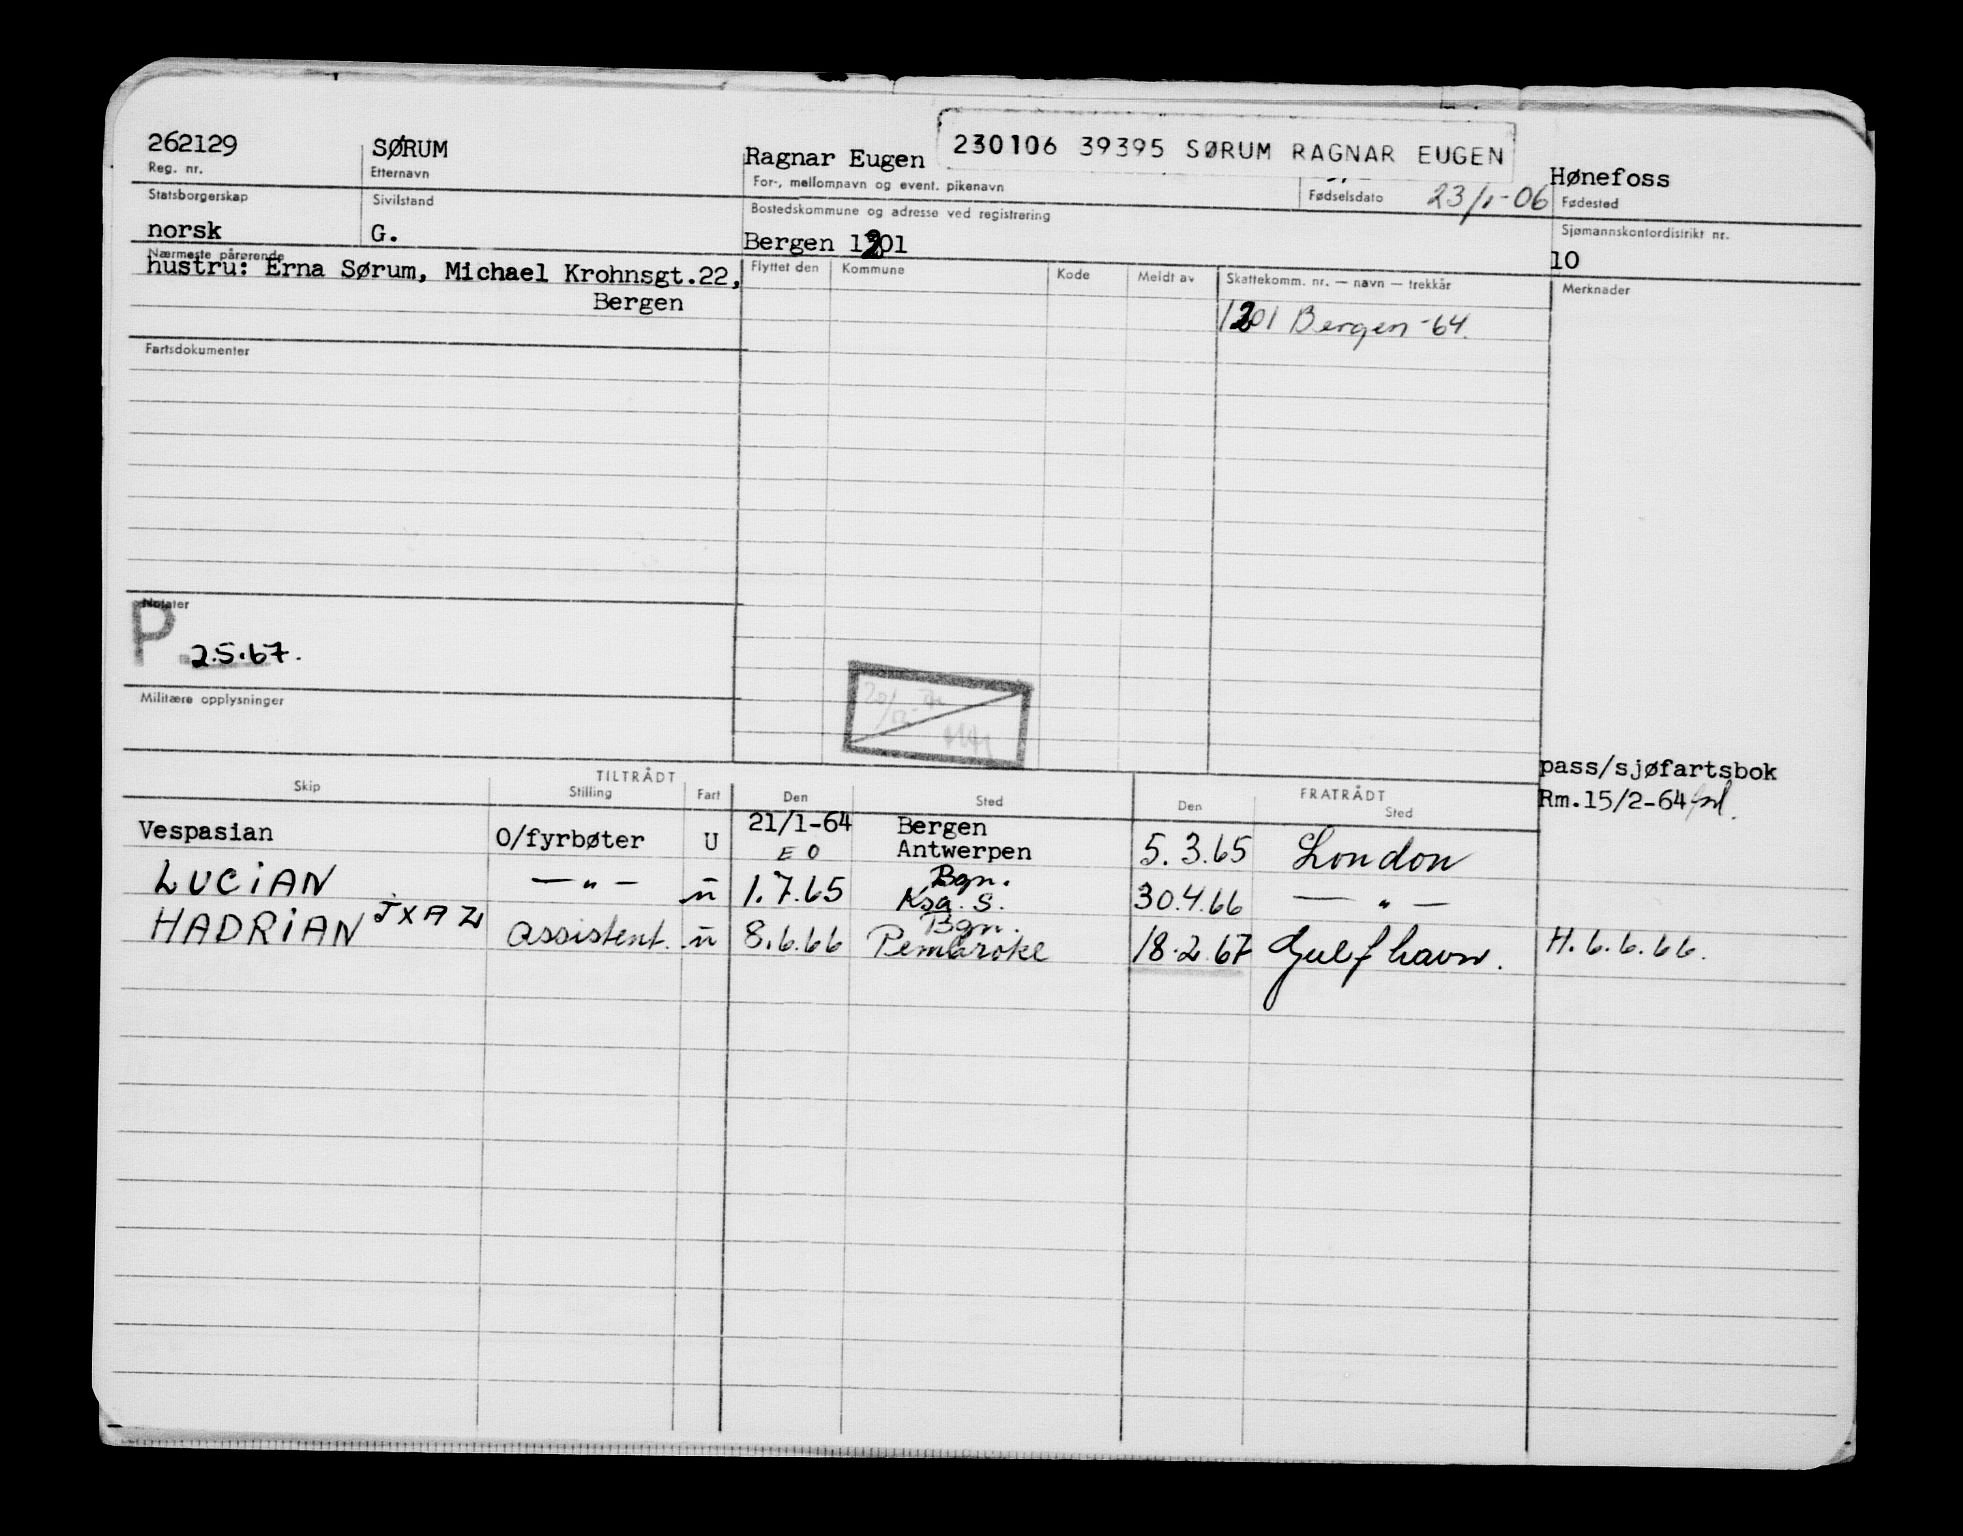 262129 SØRUM Ragnar Eugen 230106 39395 SØRUM RAGNAR EUGEN Hønefoss
Reg. nr. Etternavn For-, mellomnavn og event. pikenavn Fødselsdato 23/1-06 Fødested
Statsborgerskap Sivilstand Bostedskommune og adresse ved registrering Sjømannskontordistrikt nr.
norsk G. Bergen 1201 10
Nærmeste pårørende Flyttet den Kommune Kode Meldt av Skattekomm. nr. — navn — trekkår Merknader
hustru: Erna Sørum, Michael Krohnsgt.22,
Bergen
1201 Bergen -64.
Fartsdokumenter
Notater
P. 2.5.67.
Militære opplysninger
pass/sjøfartsbok
Rm.15/2-64
TILTRÅDT FRATRÅDT
Skip Stilling Fart Den Sted Den Sted
Vespasian O/fyrbøter U 21/1-64 Bergen
EO Antwerpen 5.3.65 London
LUCIAN — " — u 1.7.65 Bgn.
Ksa. S. 30.4.66 — " —
HADRIAN JXAZ assistent. u 8.6.66 Bgn.
Pembroke 18.2.67 Gulfhavn. H. 6.6.66.